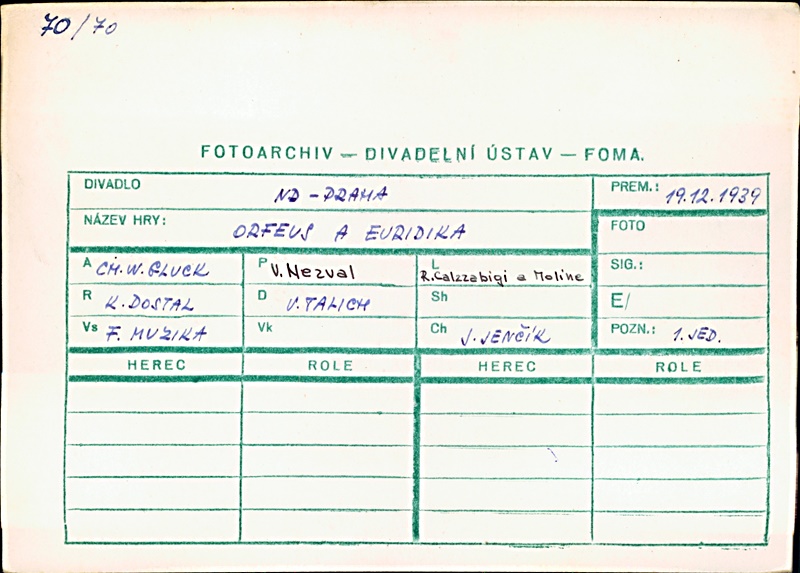 70/70
FOTOARCHIV — DIVADELNÍ ÚSTAV — FOMA.
DIVADLO ND - PRAHA PREM.: 19.12.1939
NÁZEV HRY: ORFEUS A EURIDIKA FOTO
A CH.W.GLUCK P V. Nezval L R.Calzzabigi a Moline SIG.:
R K. DOSTAL D V. TALICH Sh E/
Vs F. MUZIKA Vk Ch J. JENČÍK POZN.: 1. JED.
HEREC ROLE HEREC ROLE